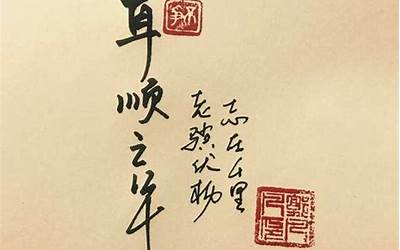 耳顺之年
老骥伏枥
志在千里